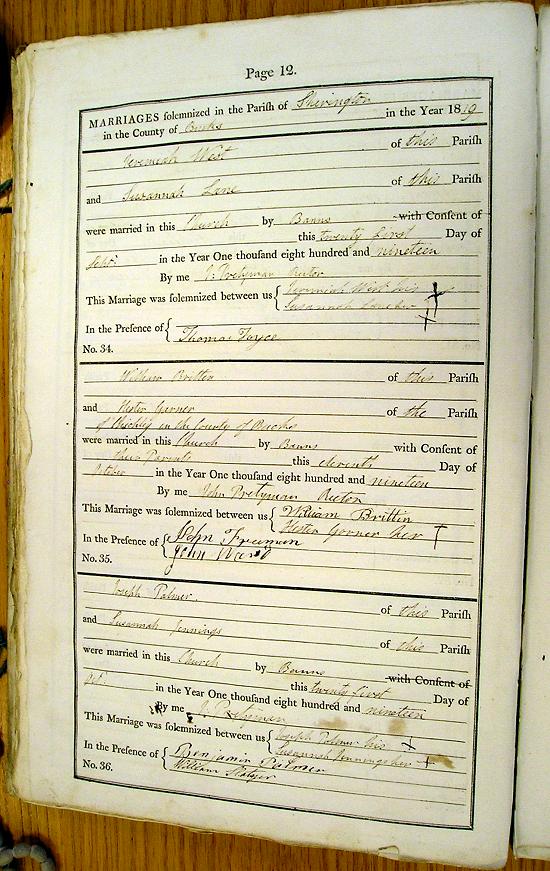 Page 12.
MARRIAGES solemnized in the Parish of Sherington
in the County of Bucks in the Year 1819
Jeremiah West of this Parish
and Susannah Lane of this Parish
were married in this Church by Banns with Consent of
this twenty first Day of
Septr in the Year One thousand eight hundred and nineteen
By me J: Pretyman Rector
This Marriage was solemnized between us { Jeremiah West his
Susannah Lane her
In the Presence of { Thomas Joyce
No. 34.
William Britten of this Parish
and Hester Gorner of the
of Chichly in the County of Bucks
were married in this Church by Banns with Consent of
their Parents this eleventh Day of
October in the Year One thousand eight hundred and nineteen
By me John Pretyman Rector
This Marriage was solemnized between us { William Brittin
Hester Gorner her
In the Presence of { John Freeman
John Ward
No. 35.
Joseph Palmer of this Parish
and Susannah Jennings of this Parish
were married in this Church by Banns with Consent of
this twenty first Day of
Oct in the Year One thousand eight hundred and nineteen
By me J. Pretyman
This Marriage was solemnized between us { Joseph Palmer his
Susannah Jennings her
In the Presence of { Benjamin Palmer
William
No. 36.